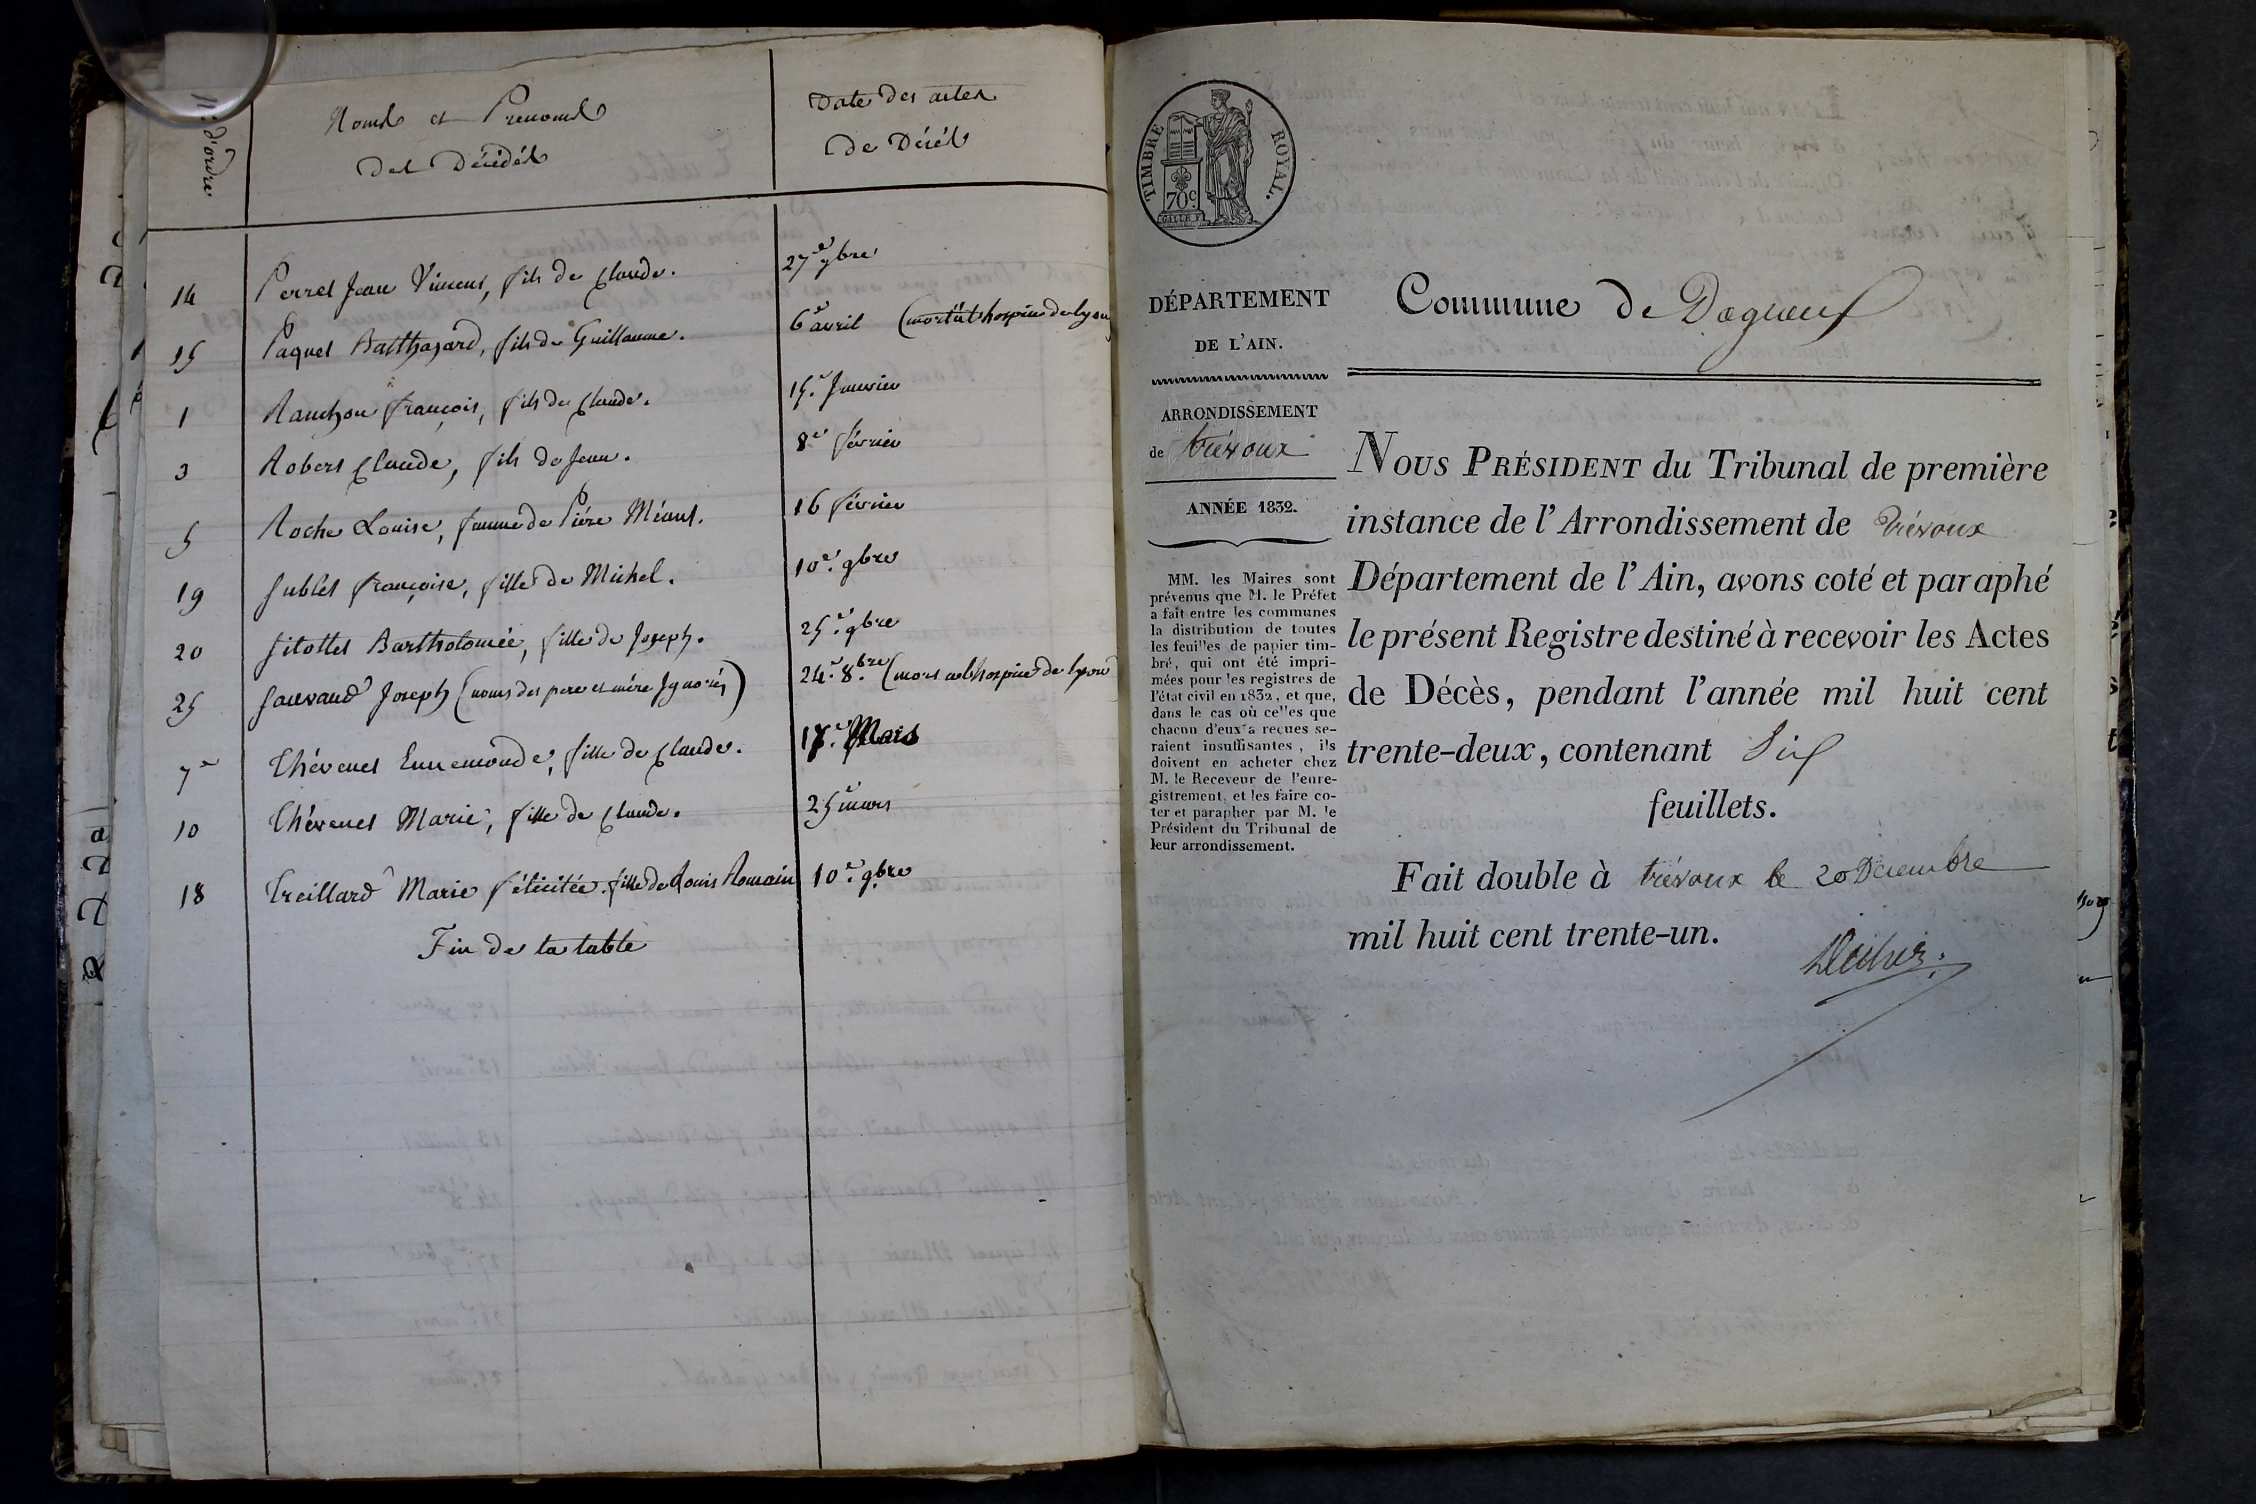 N.º d'ordre
Noms et Prenoms
Des Décédés
Date des actes
de Décès
14 Perret Jean Vincent, fils de Claude. 27.e 9bre
15 Paquet Balthazard, fils de Guillaume. 6e avril (mort à l'hospice de lyon)
1 Ranchon françois, fils de Claude. 15.e Janvier
3 Robert Claude, fils de Jean. 8e février
5 Roche Louise, femme de Piére Méant. 16 février
19 Sublet françoise, fille de Michel. 10e. 9bre
20 Sitollet Bartholomée, fille de Joseph. 25.e 9bre
25 Sauvand Joseph (noms des pere et mére Ignorés) 24.e 8.bre (mort a l'hospice de lyon
7e Thévenet Ennemonde, fille de Claude. 17.e Mars
10 Thévenet Marie, fille de Claude. 25e mars
18 Treillard Marie félicitée. fille de Louis Romain 10.e 9bre
Fin de la table
TIMBRE ROYAL.
70c.
DÉPARTEMENT
DE L'AIN.
ARRONDISSEMENT
de trévoux
ANNÉE 1832.
MM. les Maires sont
prévenus que M. le Préfet
a fait entre les communes
la distribution de toutes
les feuilles de papier tim-
bré, qui ont été impri-
mées pour les registres de
l'état civil en 1832, et que,
dans le cas où celles que
chacun d'eux a reçues se-
raient insuffisantes, ils
doivent en acheter chez
M. le Receveur de l'enre-
gistrement, et les faire co-
ter et parapher par M. le
Président du Tribunal de
leur arrondissement.
Commune de Dagneux
NOUS PRÉSIDENT du Tribunal de première
instance de l'Arrondissement de Trévoux
Département de l'Ain, avons coté et paraphé
le présent Registre destiné à recevoir les Actes
de Décès, pendant l'année mil huit cent
trente-deux, contenant Six
feuillets.
Fait double à trévoux le 20 Décembre
mil huit cent trente-un.